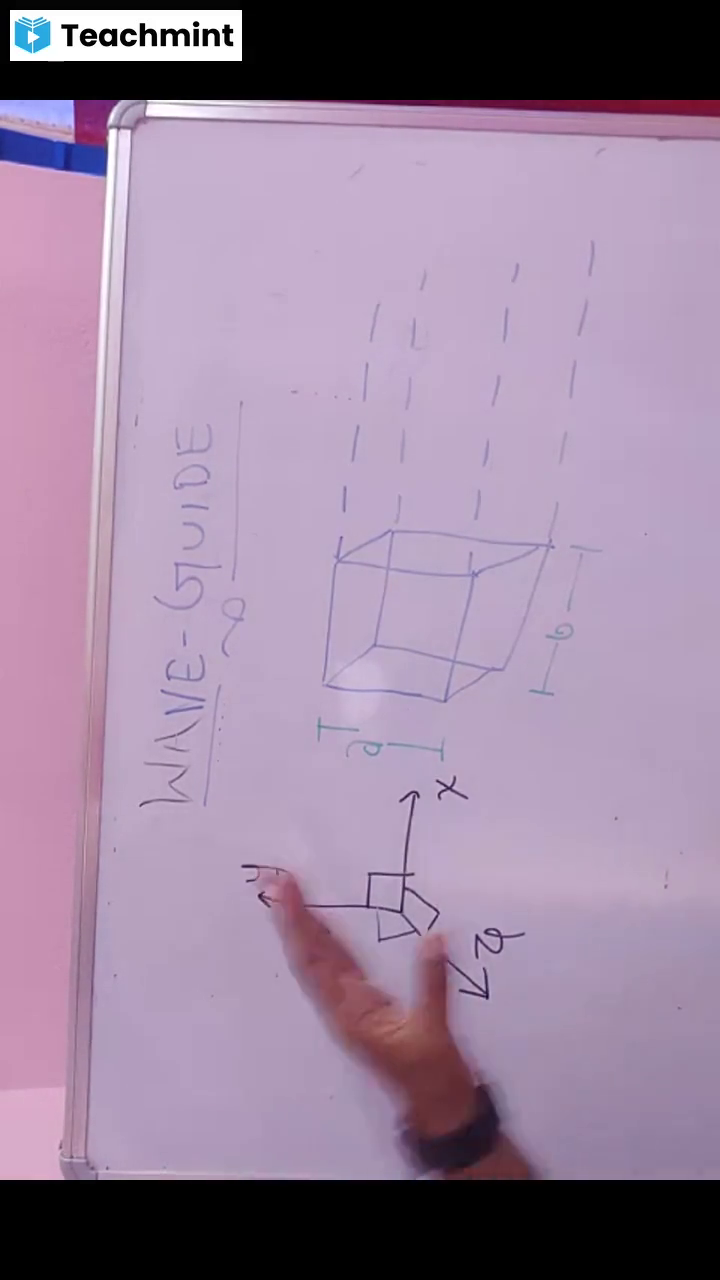 Teachmint
WAVE-GUIDE
y
x
z